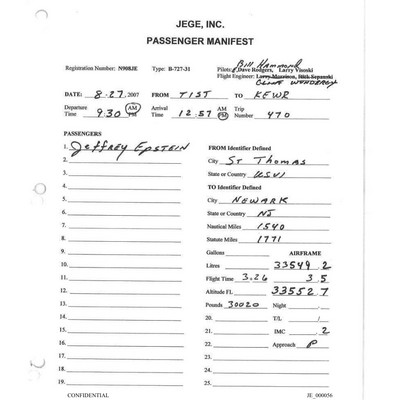 JEGE, INC.
PASSENGER MANIFEST
Bill Hammond
Registration Number: N908JE Type: B-727-31 Pilots: Dave Rodgers, Larry Visoski
Flight Engineer: Larry Morrison,
DATE: 8-27, 2007 FROM TIST TO KEWR
Departure Time 9:30 AM PM Arrival Time 12:57 AM PM Trip Number 470
PASSENGERS
1. Jeffrey Epstein FROM Identifier Defined
2. City ST Thomas
3. State or Country USVI
4. TO Identifier Defined
5. City NEWARK
6. State or Country NJ
7. Nautical Miles 1540
8. Statute Miles 1771
9. Gallons AIRFRAME
10. Litres 33549.2
11. Flight Time 3:26 3.5
12. Altitude FL 33552.7
13. Pounds 30020 Night
14. 20. T/L /
15. 21. IMC .2
16. 22. Approach P
17. 23.
18. 24.
19. 25.
CONFIDENTIAL JE_000056